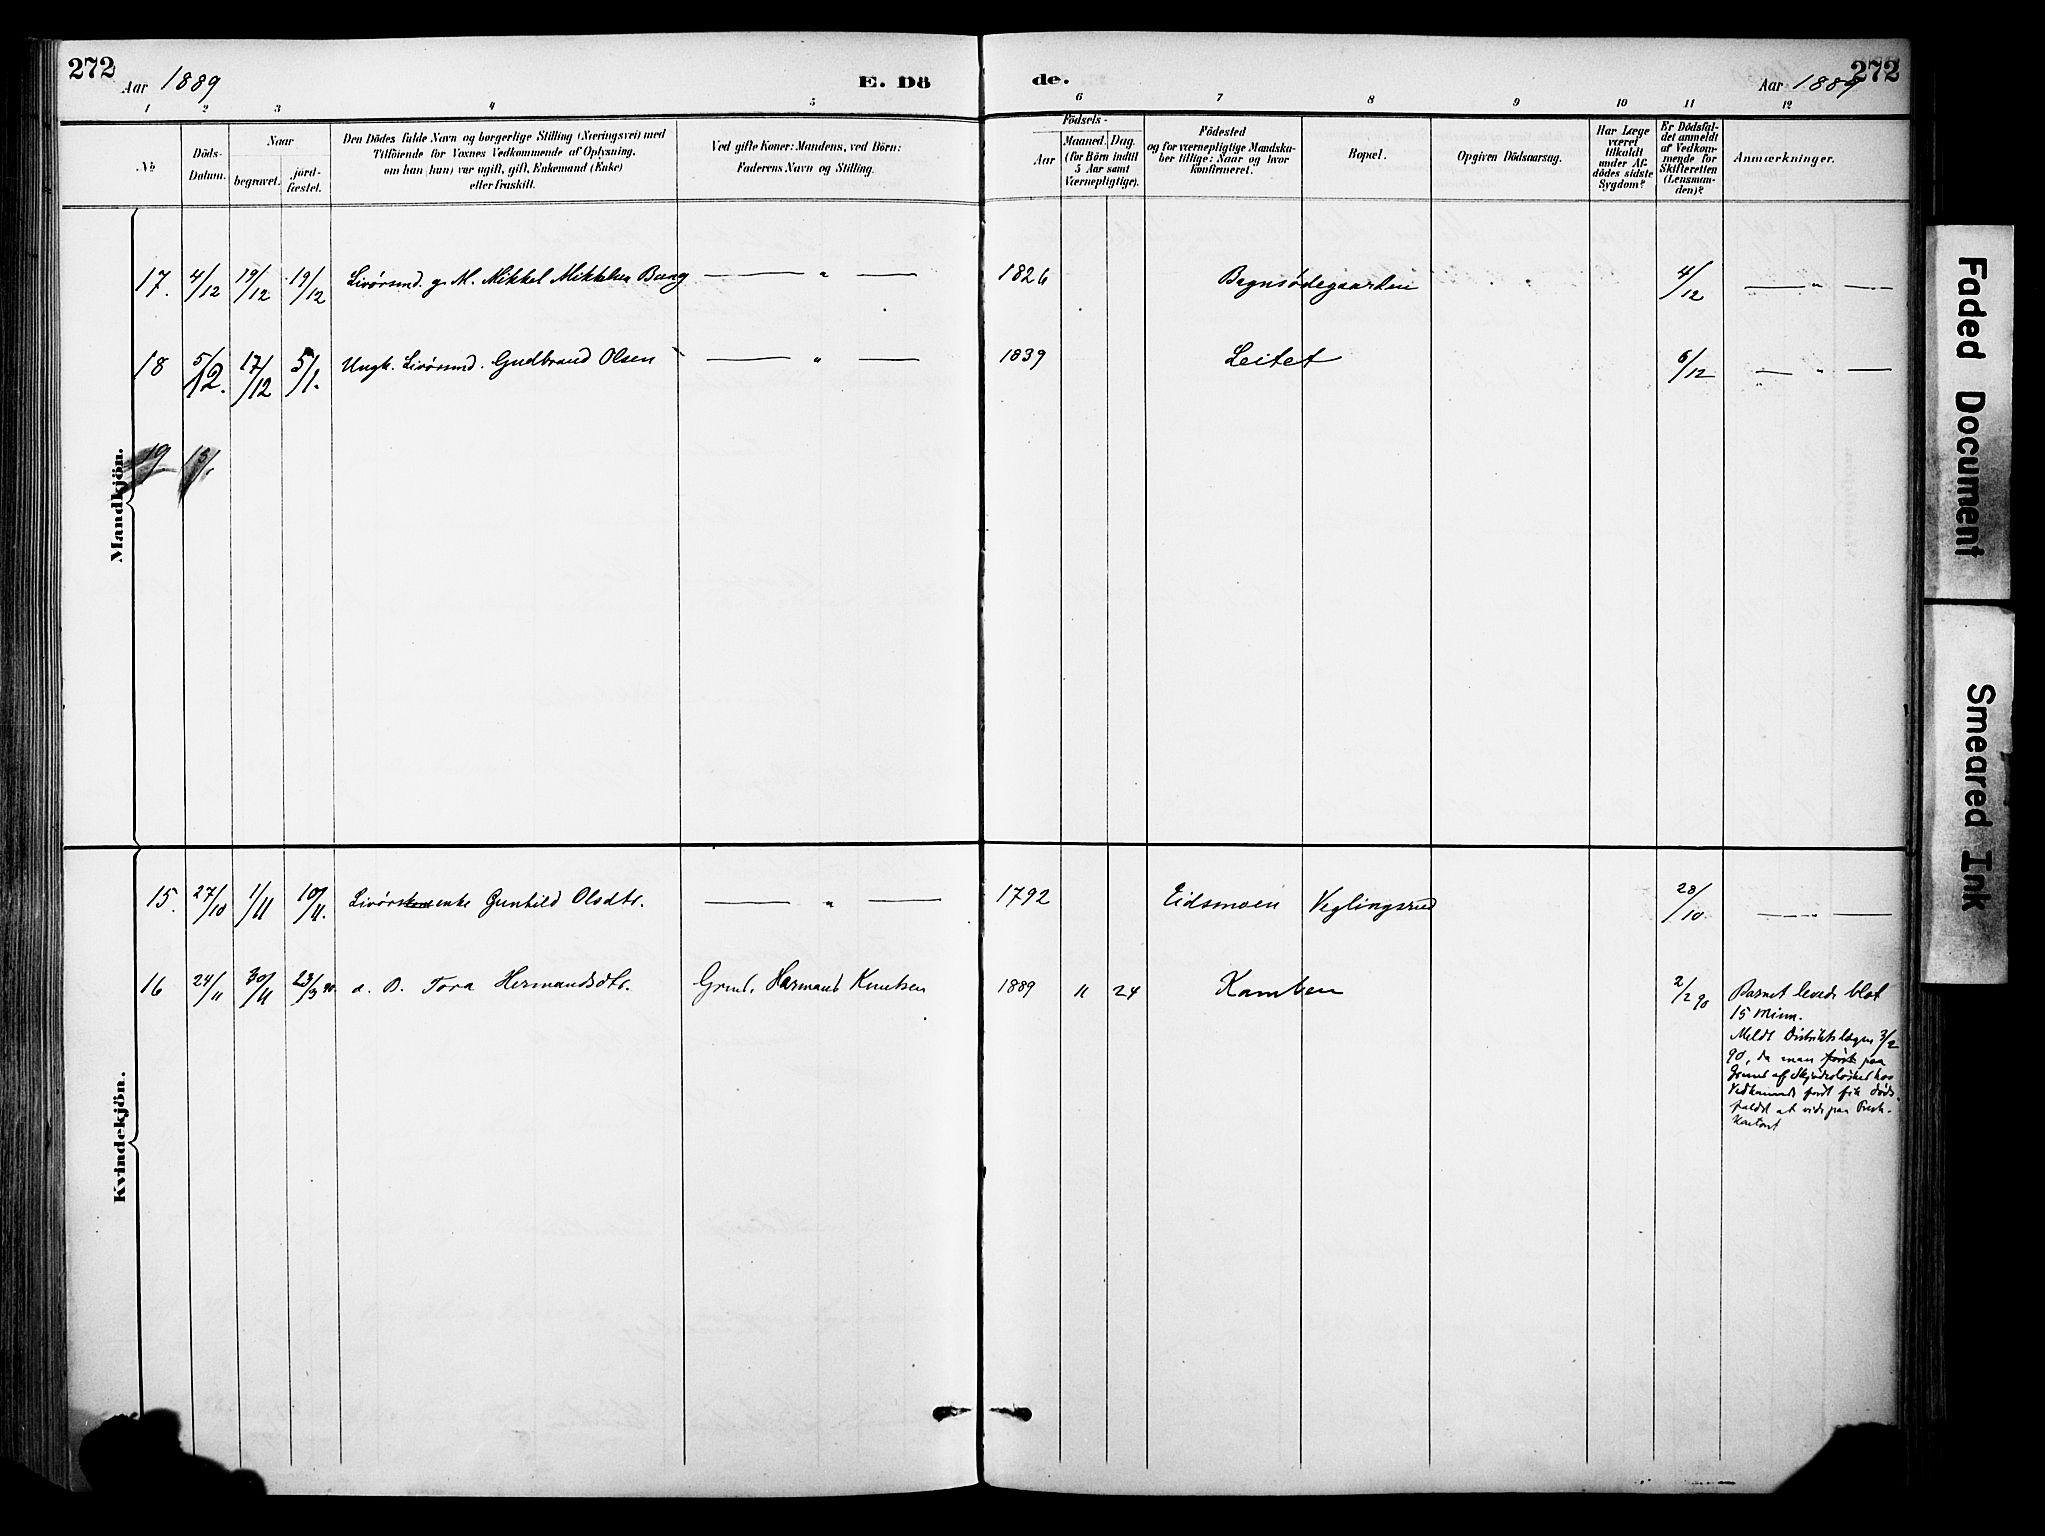 272
Aar 1889
E. Dö
de.
272
Aar 1889
1 2 3 4 5 6 7 8 9 10 11 12
No
Döds-
Datum.
Naar
begravet.
jord-
fæstet.
Den Dödes fulde Navn og borgerlige Stilling (Næringsvei) med
Tilföiende for Voxnes Vedkommende af Oplysning,
om han (hun) var ugift, gift, Enkemand (Enke)
eller fraskilt.
Ved gifte Koner: Mandens, ved Börn:
Faderens Navn og Stilling.
Födsels-
Aar
Maaned. Dag.
(for Börn indtil
5 Aar samt
Værnepligtige).
Födested
og for værnepligtige Mandska-
ber tillige: Naar og hvor
konfirmeret.
Bopæl.
Opgiven Dödsaarsag.
Har Læge
været
tilkaldt
under Af-
dödes sidste
Sygdom?
Er Dödsfal-
det anmeldt
af Vedkom-
mende for
Skifteretten
(Lensman-
den)?
Anmærkninger.
Mandkjön.
17. 4/12 19/12 19/12 Livörsmd. g. M. Mikkel Mikkelsen Bang — " — 1826 Bagnsödegaarden 4/12 — " —
18 5/12. 17/12 5/1. Ungk. Livörsmd. Gudbrand Olsen — " — 1839 Leitet 6/12 — " —
19 15/
Kvindekjön.
15. 27/10 1/11 10/11. Livörskone enke Gunhild Olsdtr. — " — 1792 Eidsmoen Veglingsrud 28/10 — " —
16 24/11 30/11 23/3 90. d. B. Tora Hermandsdtr. Grmd. Hermand Knutsen 1889 11 24 Kamben 2/2 90 Barnet levede blot
15 Minn.
Meldt Distriktslægen 3/2
90, da man först paa
Grund af Skjödeslöshed hos
Vedkommende först fik Döds-
faldet at vide paa Prest-
kontoret
Faded Document
Smeared Ink